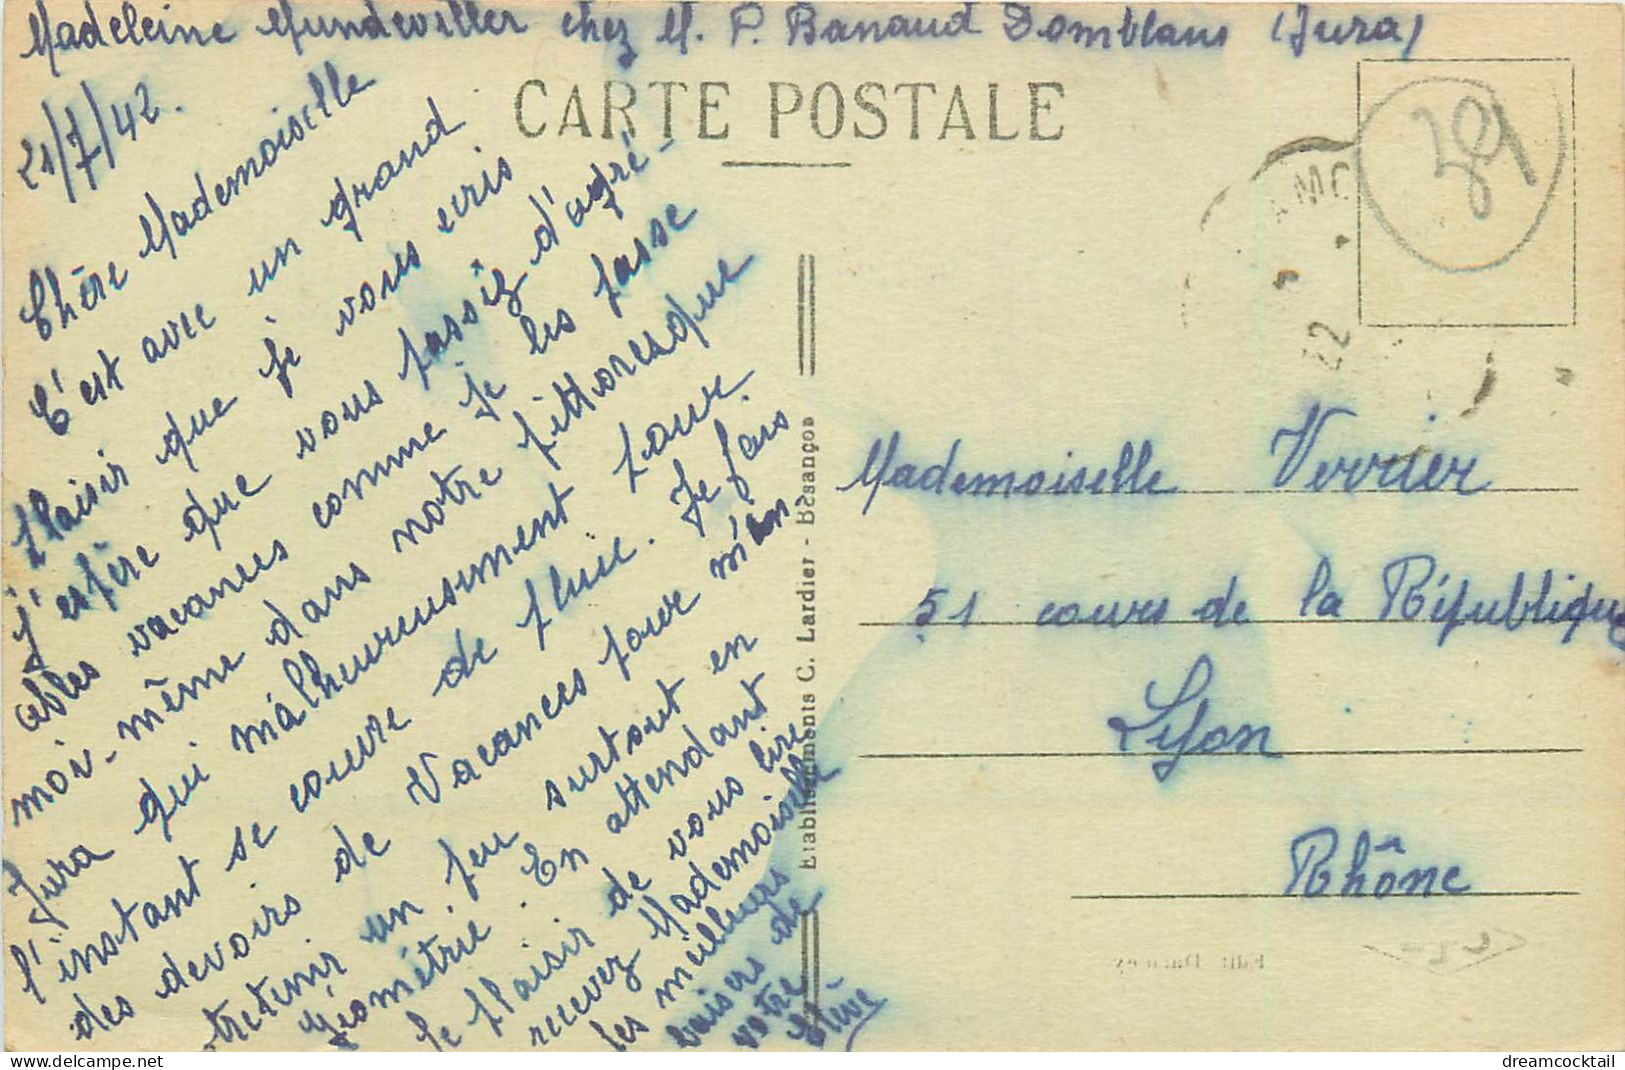 Madeleine Mundwiller chez M. P. Banaud Domblans (Jura)
21/7/42.
CARTE POSTALE
Chère Mademoiselle
C'est avec un grand
plaisir que je vous ecris
J'espère que vous passiez d'agré-
ables vacances comme je les passe
moi-même dans notre pittoresque
Jura qui malheureusement pour
l'instant se couvre de pluie. Je fais
des devoirs de Vacances pour m'en
tretenir un peu surtout en
géométrie. En attendant
le plaisir de vous lire
recevez Mademoiselle
les meilleurs
baisers de
votre
élève
Etablissements C. Lardier - Besançon
381
22
Mademoiselle Verrier
51 cours de la République
Lyon
Rhône
dreamcocktail